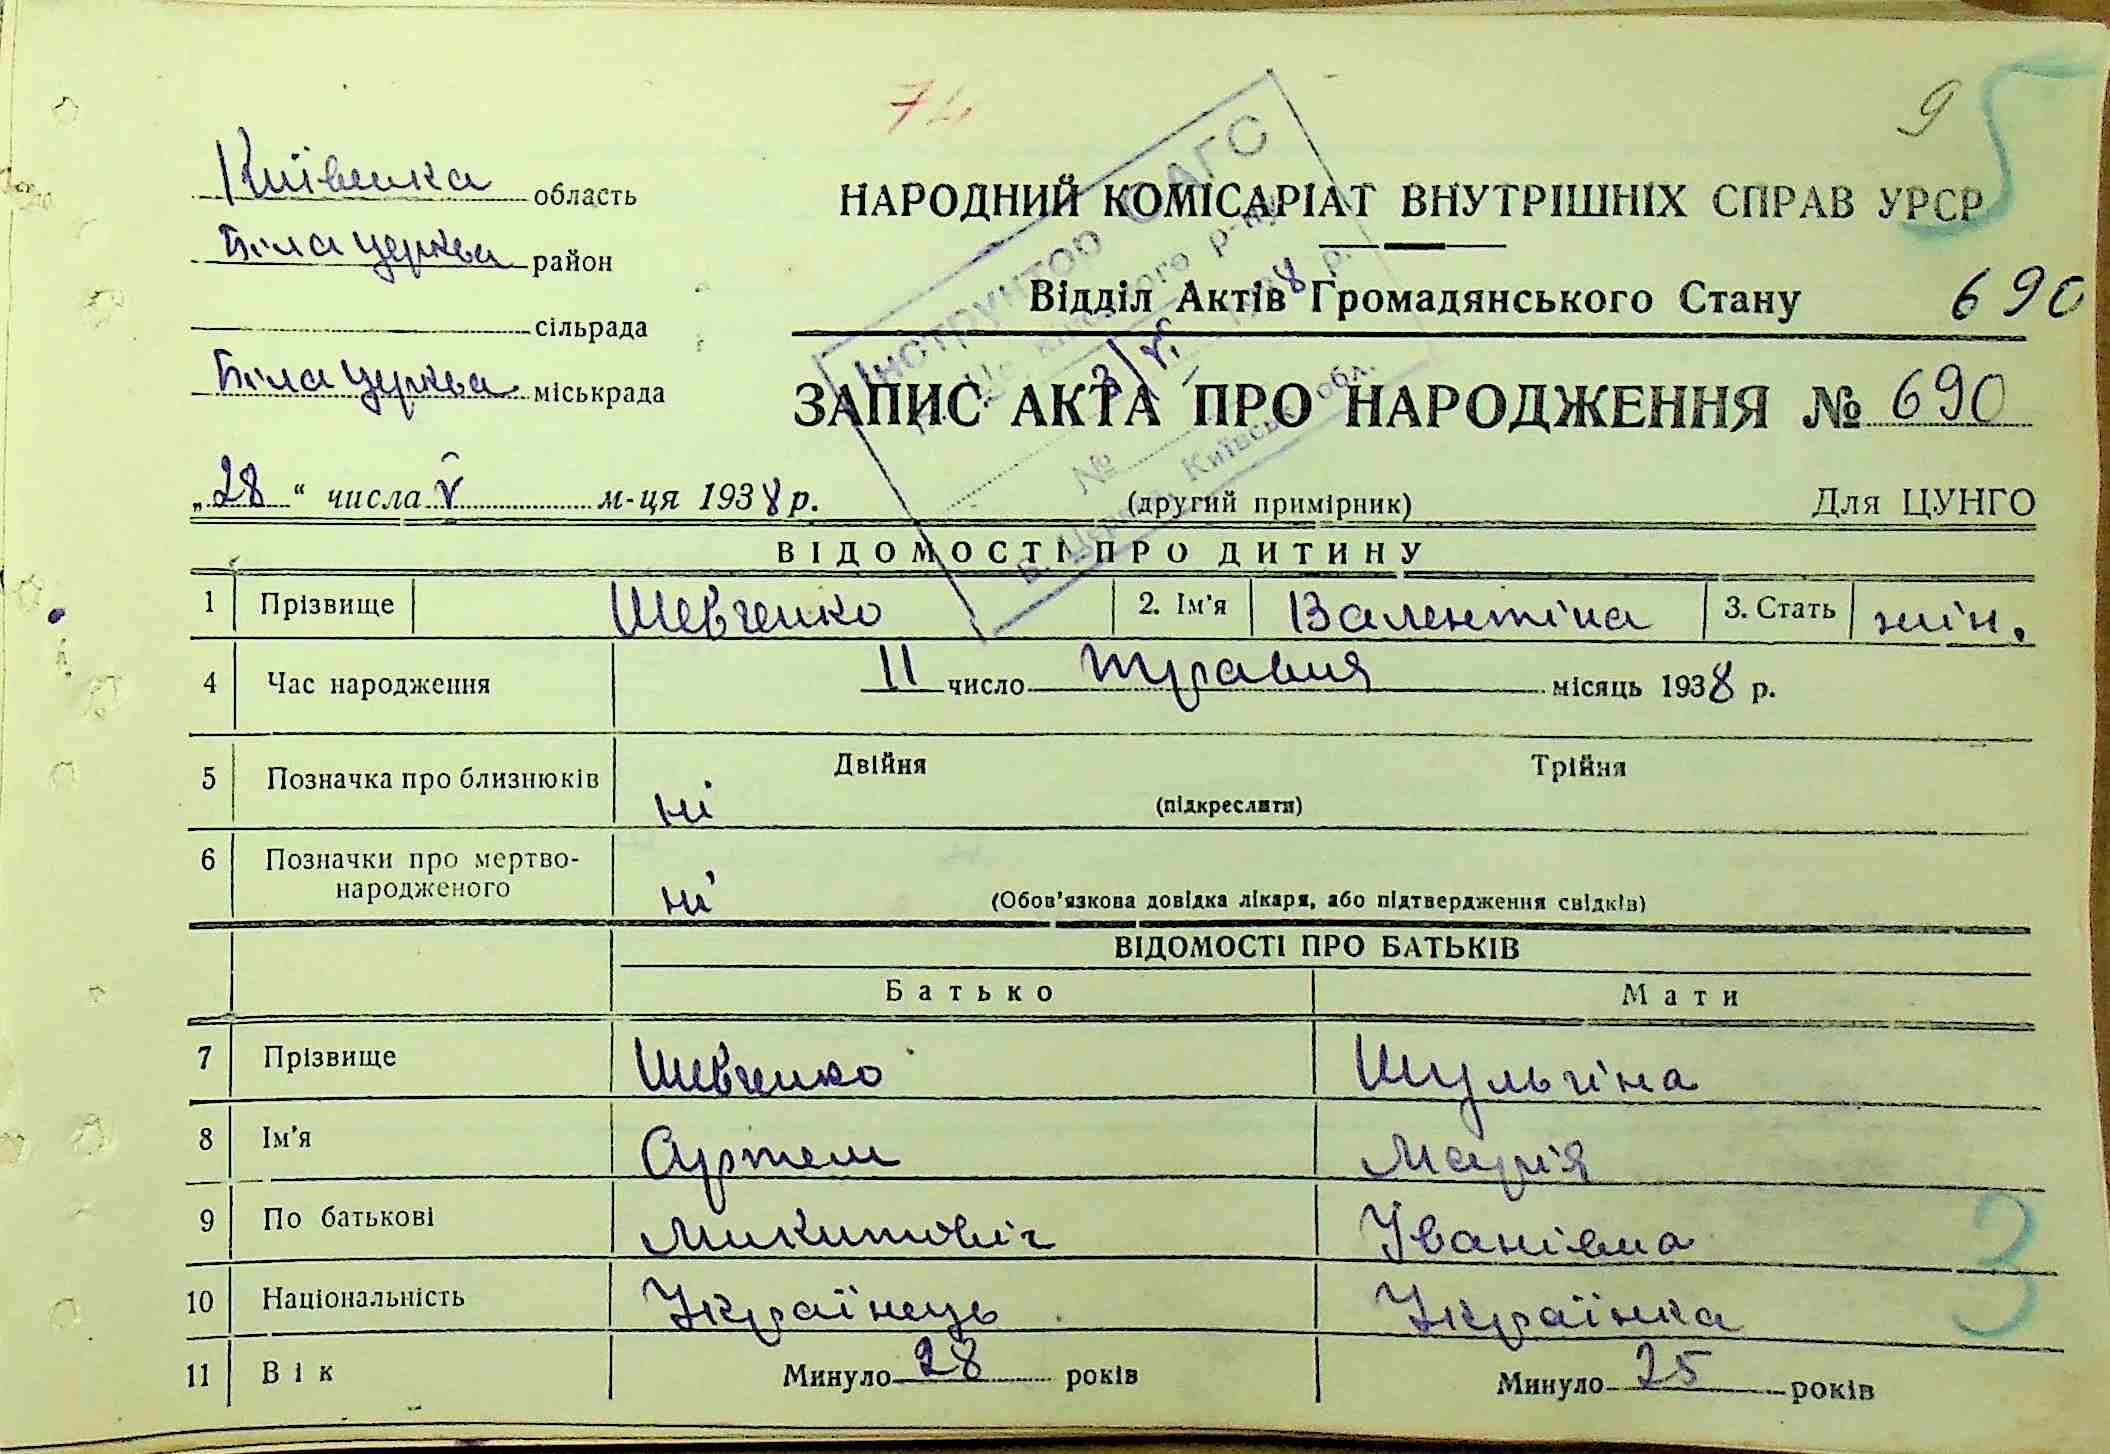 74
9 5
Київська область
НАРОДНИЙ КОМІСАРІАТ ВНУТРІШНІХ СПРАВ УРСР
Біла церква район
Відділ Актів Громадянського Стану 690
сільрада
Біла церква міськрада
ЗАПИС АКТА ПРО НАРОДЖЕННЯ № 690
„28“ числа V м-ця 1938 р. (другий примірник) Для ЦУНГО
Інструктор ЗАГС
р-ну
№
Київськ. обл.
ВІДОМОСТІ ПРО ДИТИНУ
1 Прізвище Шевченко 2. Ім'я Валентіна 3. Стать жін.
4 Час народження 11 число травня місяць 1938 р.
5 Позначка про близнюків ні Двійня Трійня
(підкреслити)
6 Позначки про мертво-
народженого ні (Обов'язкова довідка лікаря, або підтвердження свідків)
ВІДОМОСТІ ПРО БАТЬКІВ
Батько Мати
7 Прізвище Шевченко Шульгіна
8 Ім'я Артем Марія
9 По батькові Микитовіч Іванівна
10 Національність Українець Українка
3
11 Вік Минуло 28 років Минуло 25 років